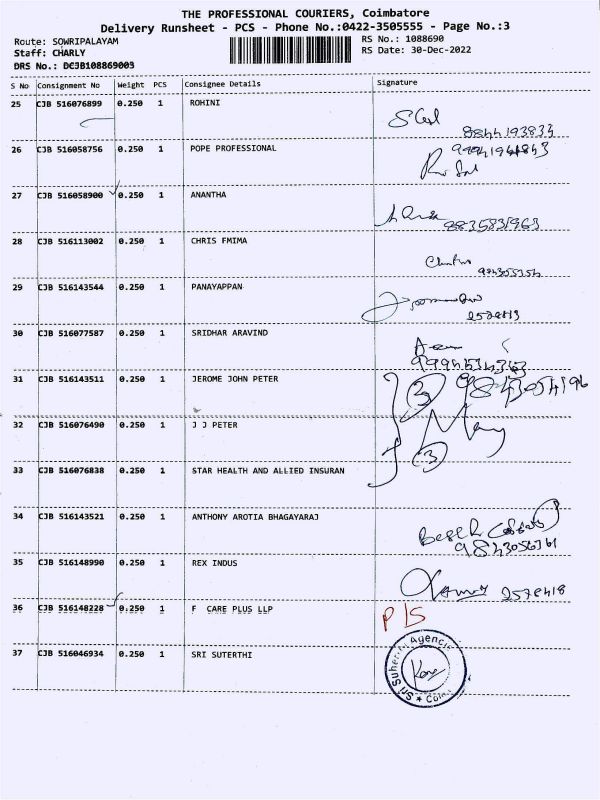 THE PROFESSIONAL COURIERS, Coimbatore
Delivery Runsheet - PCS - Phone No.:0422-3505555 - Page No.:3
Route: SOWRIPALAYAM
RS No.: 1088690
Staff: CHARLY
RS Date: 30-Dec-2022
DRS No.: DCJB108869003
S No Consignment No Weight PCS Consignee Details Signature
25 CJB 516076899 0.250 1 ROHINI
26 CJB 516058756 0.250 1 POPE PROFESSIONAL
27 CJB 516058900 0.250 1 ANANTHA
28 CJB 516113002 0.250 1 CHRIS FMIMA
29 CJB 516143544 0.250 1 PANAYAPPAN
30 CJB 516077587 0.250 1 SRIDHAR ARAVIND
31 CJB 516143511 0.250 1 JEROME JOHN PETER
3 9843054196
32 CJB 516076490 0.250 1 J J PETER
3
33 CJB 516076838 0.250 1 STAR HEALTH AND ALLIED INSURAN
34 CJB 516143521 0.250 1 ANTHONY AROTIA BHAGAYARAJ
35 CJB 516148990 0.250 1 REX INDUS
36 CJB 516148228 0.250 1 F CARE PLUS LLP
P/S
37 CJB 516046934 0.250 1 SRI SUTERTHI